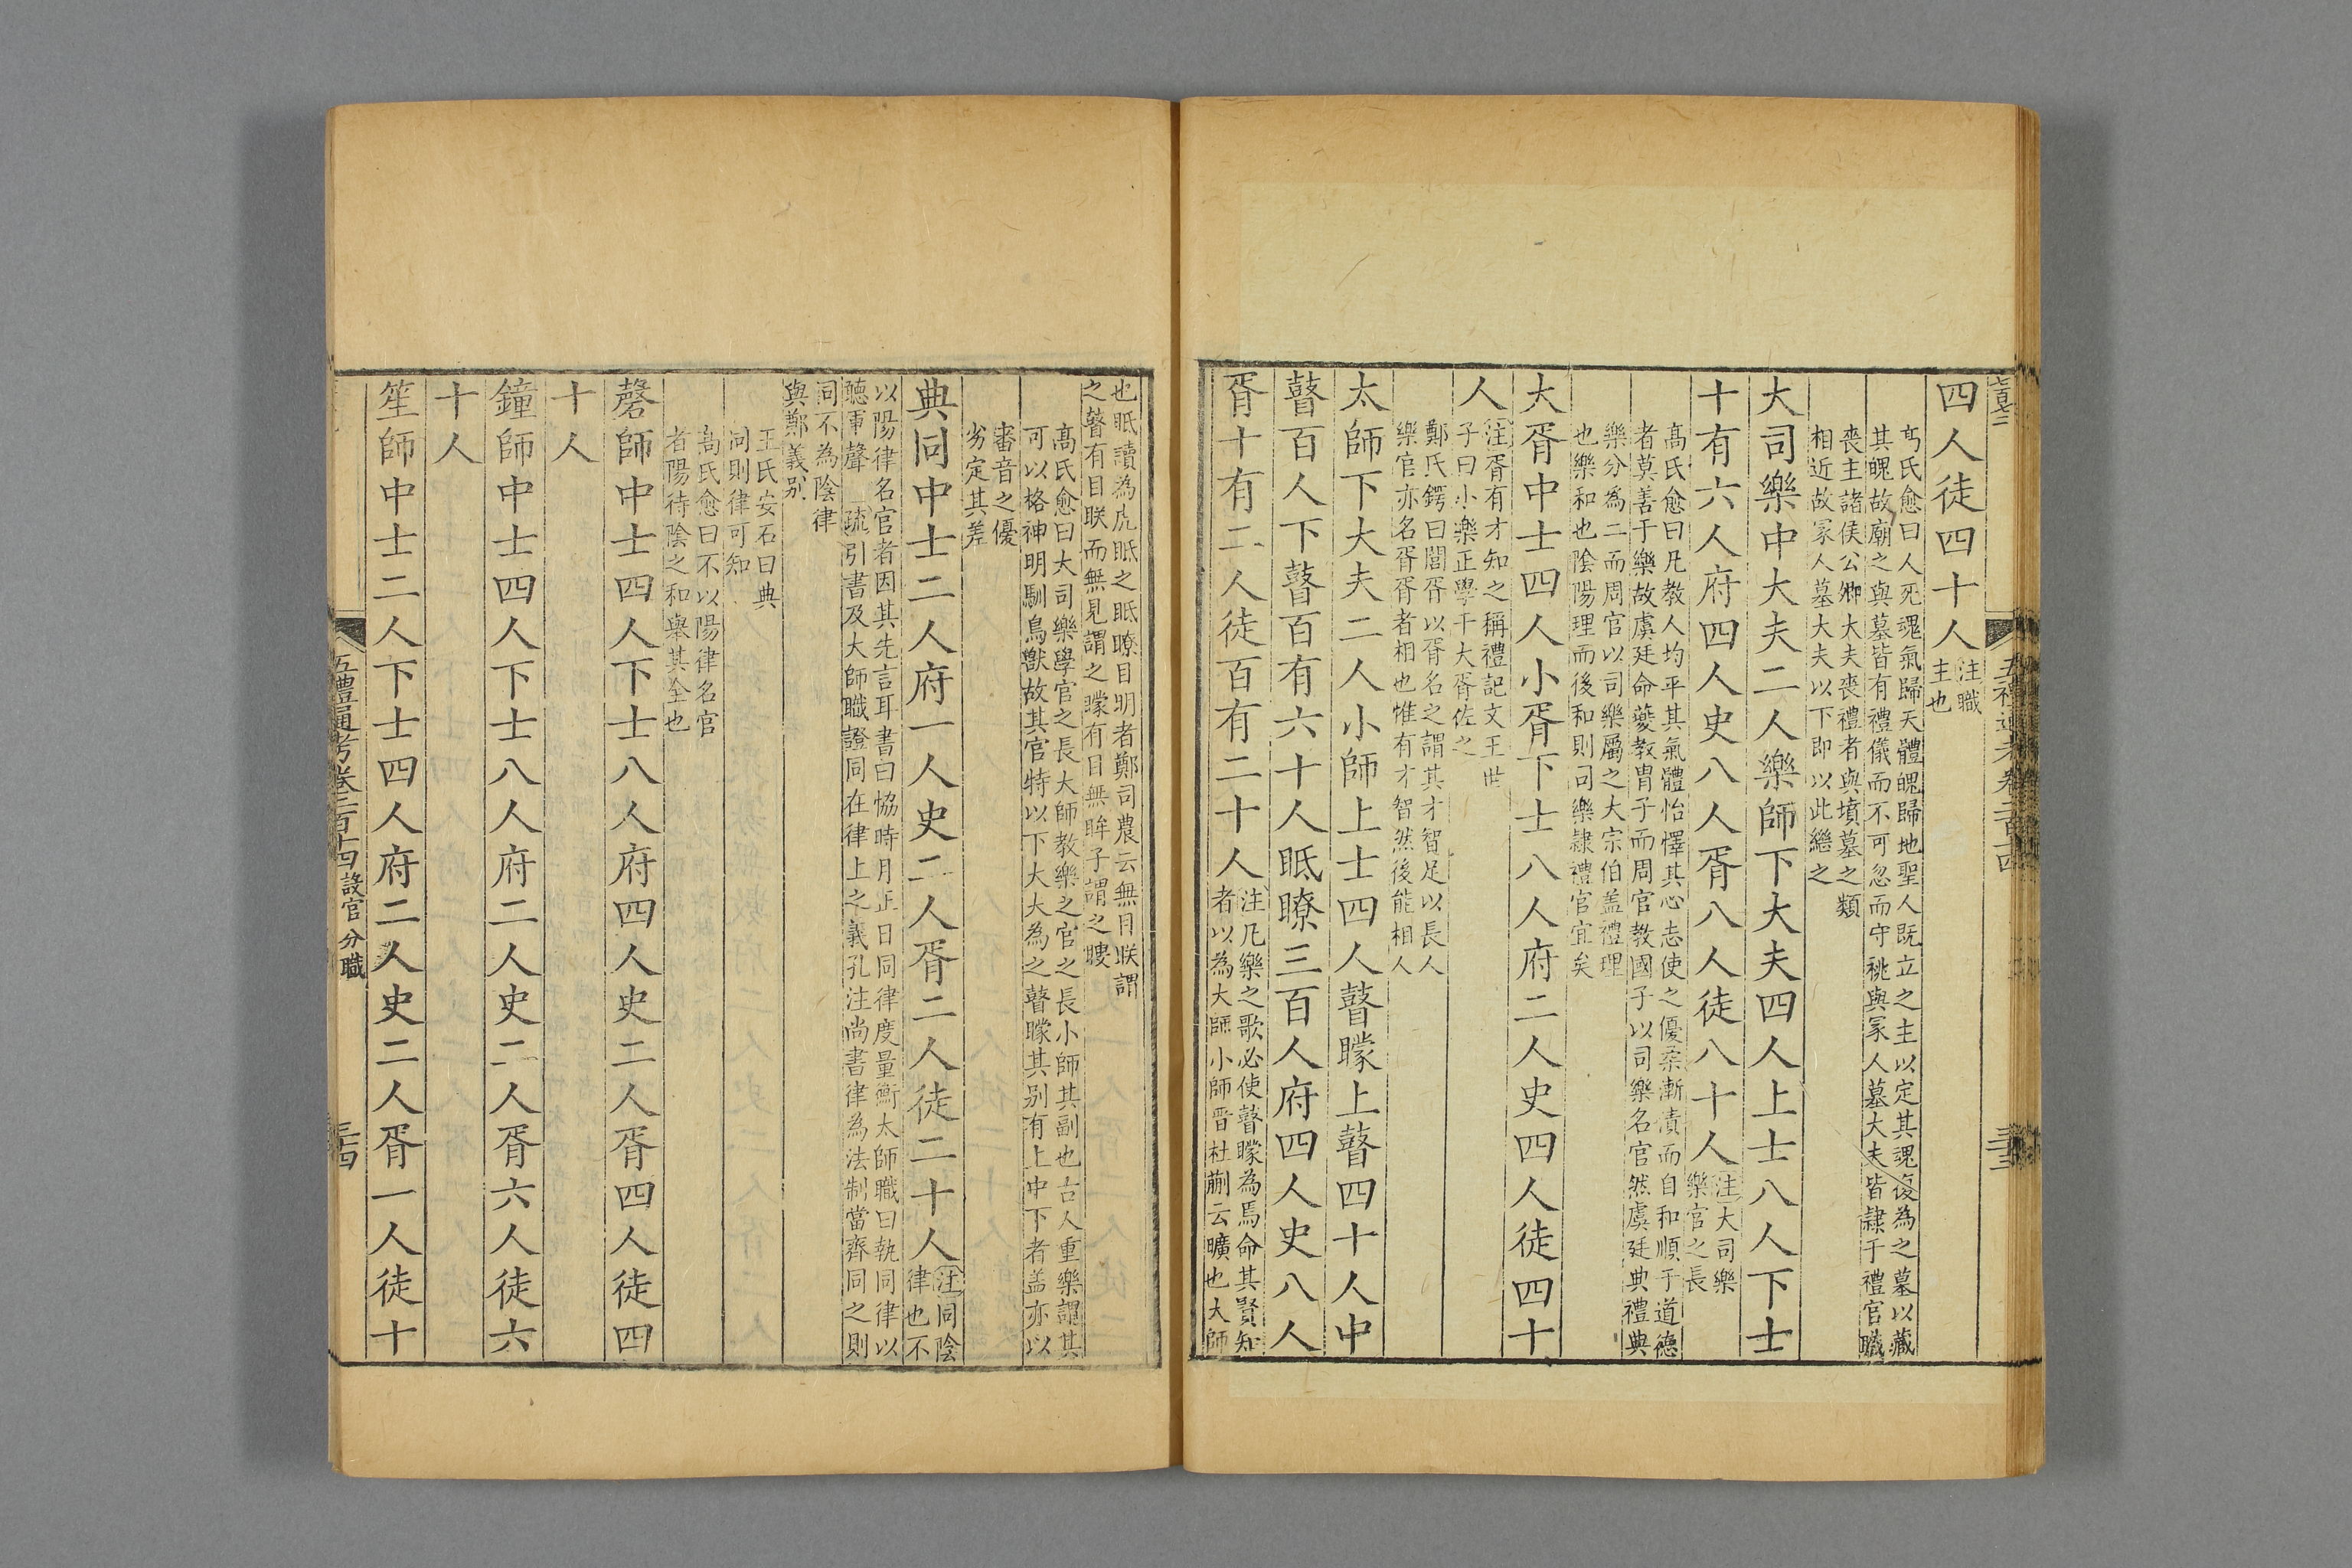 四人徒四十人
注職
主也
高氏愈曰人死魂氣歸天體魄歸地聖人既立之主以定其魂復為之墓以藏
其魄故廟之與墓皆有禮儀而不可忽而守祧與冢人墓大夫皆隸于禮官職
喪主諸侯公卿大夫喪禮者與墳墓之類
相近故冢人墓大夫以下即以此繼之
大司樂中大夫二人樂師下大夫四人上士八人下士
十有六人府四人史八人胥八人徒八十人
注大司樂
樂官之長
高氏愈曰凡教人均平其氣體怡懌其心志使之優柔漸漬而自和順于道德
者莫善于樂故虞廷命夔教胄子而周官教國子以司樂名官然虞廷典禮典
樂分為二而周官以司樂屬之大宗伯盖禮理
也樂和也陰陽理而後和則司樂隸禮官宜矣
大胥中士四人小胥下士八人府二人史四人徒四十
人
注胥有才知之稱禮記文王世
子曰小樂正學干大胥佐之
鄭氏鍔曰閭胥以胥名之謂其才智足以長人
樂官亦名胥胥者相也惟有才智然後能相人
太師下大夫二人小師上士四人瞽矇上瞽四十人中
瞽百人下瞽百有六十人眡瞭三百人府四人史八人
胥十有二人徒百有二十人
注凡樂之歌必使瞽矇為焉命其賢知
者以為大師小師晋杜蒯云曠也大師
也眡讀為虎眡之眡瞭目明者鄭司農云無目眹謂
之瞽有目眹而無見謂之矇有目無眸子謂之瞍
高氏愈曰大司樂學官之長大師教樂之官之長小師其副也古人重樂謂其
可以格神明馴鳥獸故其官特以下大夫為之瞽矇其别有上中下者盖亦以
審音之優
劣定其差
典同中士二人府一人史二人胥二人徒二十人
注同陰
律也不
以陽律名官者因其先言耳書曰恊時月正日同律度量衡大師職曰執同律以
聽軍聲 疏引書及大師職證同在律上之義孔注尚書律為法制當齊同之則
同不為陰律
與鄭義别
王氏安石曰典
同則律可知
高氏愈曰不以陽律名官
者陽待陰之和舉其全也
磬師中士四人下士八人府四人史二人胥四人徒四
十人
鐘師中士四人下士八人府二人史二人胥六人徒六
十人
笙師中士二人下士四人府二人史二人胥一人徒十
五禮通考卷二百十四 設官分職
三四